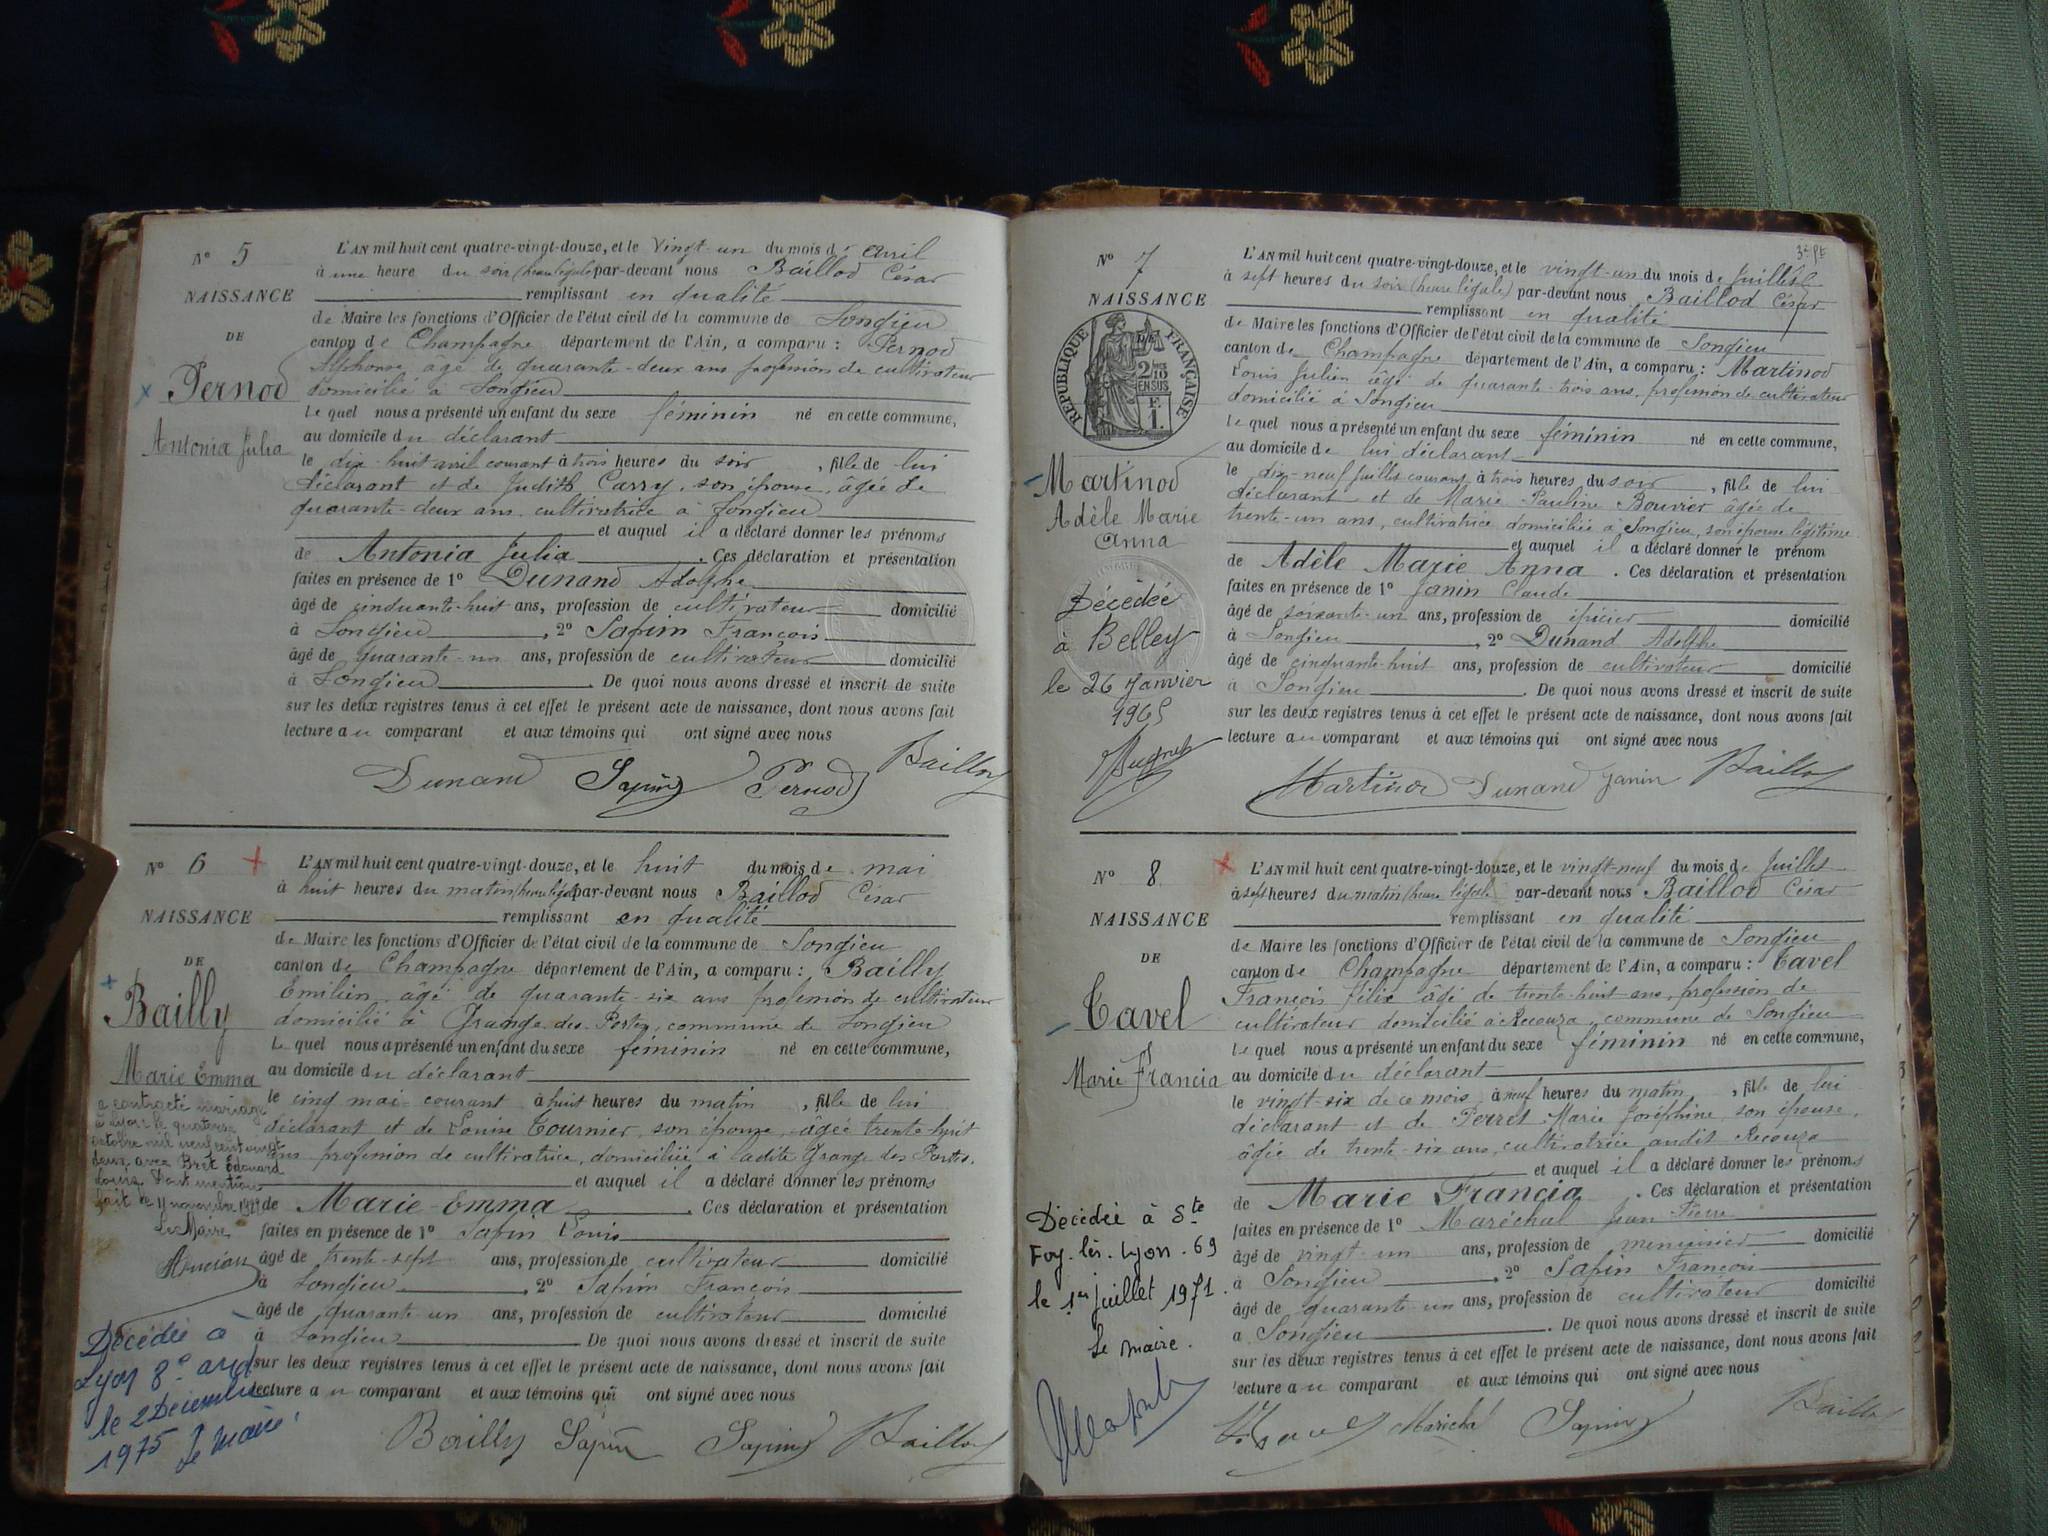 N° 5
NAISSANCE
DE
Pernod
Antonia Julia
L'AN mil huit cent quatre-vingt-douze, et le vingt-un du mois d'avril
à une heure du soir (heure légale) par-devant nous Baillod César
remplissant en qualité
de Maire les fonctions d'Officier de l'état civil de la commune de Songieu
canton de Champagne département de l'Ain, a comparu : Pernod
Alphonse âgé de quarante-deux ans profession de cultivateur
domicilié à Songieu
Lequel nous a présenté un enfant du sexe féminin né en cette commune,
au domicile du déclarant
le dix-huit avril courant à trois heures du soir, fille de lui
déclarant et de Judith Carry, son épouse, âgée de
quarante-deux ans, cultivatrice à Songieu
et auquel il a déclaré donner les prénoms
de Antonia Julia. Ces déclaration et présentation
faites en présence de 1° Dunand Adolphe
âgé de cinquante-huit ans, profession de cultivateur domicilié
à Songieu, 2° Sapin François
âgé de quarante-un ans, profession de cultivateur domicilié
à Songieu. De quoi nous avons dressé et inscrit de suite
sur les deux registres tenus à cet effet le présent acte de naissance, dont nous avons fait
lecture au comparant et aux témoins qui ont signé avec nous
Dunand Sapin Pernod Baillod
N° 6
NAISSANCE
DE
Bailly
Marie Emma
a contracté mariage
à Lyon le quatorze
octobre mil neuf cent vingt
deux avec Bret Edouard
Louis. Dont mention
fait le 11 novembre 1922
Le Maire
Décédée à
Lyon 8e ard
le 2 Décembre
1975 Le maire
L'AN mil huit cent quatre-vingt-douze, et le huit du mois de mai
à huit heures du matin (heure légale) par-devant nous Baillod César
remplissant en qualité
de Maire les fonctions d'Officier de l'état civil de la commune de Songieu
canton de Champagne département de l'Ain, a comparu : Bailly
Emilien âgé de quarante-six ans profession de cultivateur
domicilié à Grange des Portes, commune de Songieu
Lequel nous a présenté un enfant du sexe féminin né en cette commune,
au domicile du déclarant
le cinq mai courant à huit heures du matin, fille de lui
déclarant et de Louise Tournier, son épouse, âgée trente-huit
ans profession de cultivatrice, domiciliée à ladite Grange des Portes.
et auquel il a déclaré donner les prénoms
de Marie-Emma. Ces déclaration et présentation
faites en présence de 1° Sapin Louis
âgé de trente-sept ans, profession de cultivateur domicilié
à Songieu, 2° Sapin François
âgé de quarante un ans, profession de cultivateur domicilié
à Songieu De quoi nous avons dressé et inscrit de suite
sur les deux registres tenus à cet effet le présent acte de naissance, dont nous avons fait
lecture au comparant et aux témoins qui ont signé avec nous
Bailly Sapin Sapin Baillod
3e ft
N° 7
NAISSANCE
RÉPUBLIQUE FRANÇAISE
DE
2 10mes
EN SUS
F.
1.
Martinod
Adèle Marie
Anna
Décédée
à Belley
le 26 Janvier
1965
L'AN mil huit cent quatre-vingt-douze, et le vingt-un du mois de Juillet
à sept heures du soir (heure légale) par-devant nous Baillod César
remplissant en qualité
de Maire les fonctions d'Officier de l'état civil de la commune de Songieu
canton de Champagne département de l'Ain, a comparu : Martinod
Louis Julien âgé de quarante-trois ans, profession de cultivateur
domicilié à Songieu
Lequel nous a présenté un enfant du sexe féminin né en cette commune,
au domicile de lui déclarant
le dix-neuf juillet courant à trois heures du soir, fille de lui
déclarant et de Marie-Pauline Bouvier âgée de
trente-un ans, cultivatrice domiciliée à Songieu, son épouse légitime
et auquel il a déclaré donner le prénom
de Adèle Marie Anna. Ces déclaration et présentation
faites en présence de 1° Janin Claude
âgé de soixante-un ans, profession de épicier domicilié
à Songieu, 2° Dunand Adolphe
âgé de cinquante-huit ans, profession de cultivateur domicilié
à Songieu. De quoi nous avons dressé et inscrit de suite
sur les deux registres tenus à cet effet le présent acte de naissance, dont nous avons fait
lecture au comparant et aux témoins qui ont signé avec nous
Martinod Dunand Janin Baillod
N° 8
NAISSANCE
DE
Tavel
Marie Francia
Décédée à Ste
Foy-lès-Lyon-69
le 1er juillet 1971.
Le maire.
L'AN mil huit cent quatre-vingt-douze, et le vingt-neuf du mois de Juillet
à sept heures du matin (heure légale) par-devant nous Baillod César
remplissant en qualité
de Maire les fonctions d'Officier de l'état civil de la commune de Songieu
canton de Champagne département de l'Ain, a comparu : Tavel
François Félix âgé de trente-huit ans, profession de
cultivateur domicilié à Recouza, commune de Songieu
Lequel nous a présenté un enfant du sexe féminin né en cette commune,
au domicile du déclarant
le vingt-six de ce mois, à neuf heures du matin, fille de lui
déclarant et de Perret Marie Joséphine son épouse,
âgée de trente-six ans, cultivatrice audit Recouza
et auquel il a déclaré donner les prénoms
de Marie Francia. Ces déclaration et présentation
faites en présence de 1° Maréchal Jean-Pierre
âgé de vingt-un ans, profession de menuisier domicilié
à Songieu, 2° Sapin François
âgé de quarante-un ans, profession de cultivateur domicilié
à Songieu. De quoi nous avons dressé et inscrit de suite
sur les deux registres tenus à cet effet le présent acte de naissance, dont nous avons fait
lecture au comparant et aux témoins qui ont signé avec nous
Maréchal Sapin Baillod